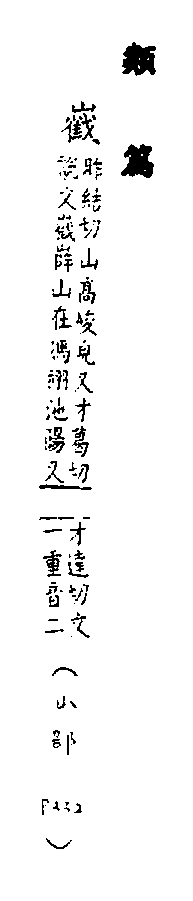 類篇
巀
昨結切山高峻皃又才葛切
說文巀嶭山在馮翊池陽又
才達切文
一重音二
(山部 P232)